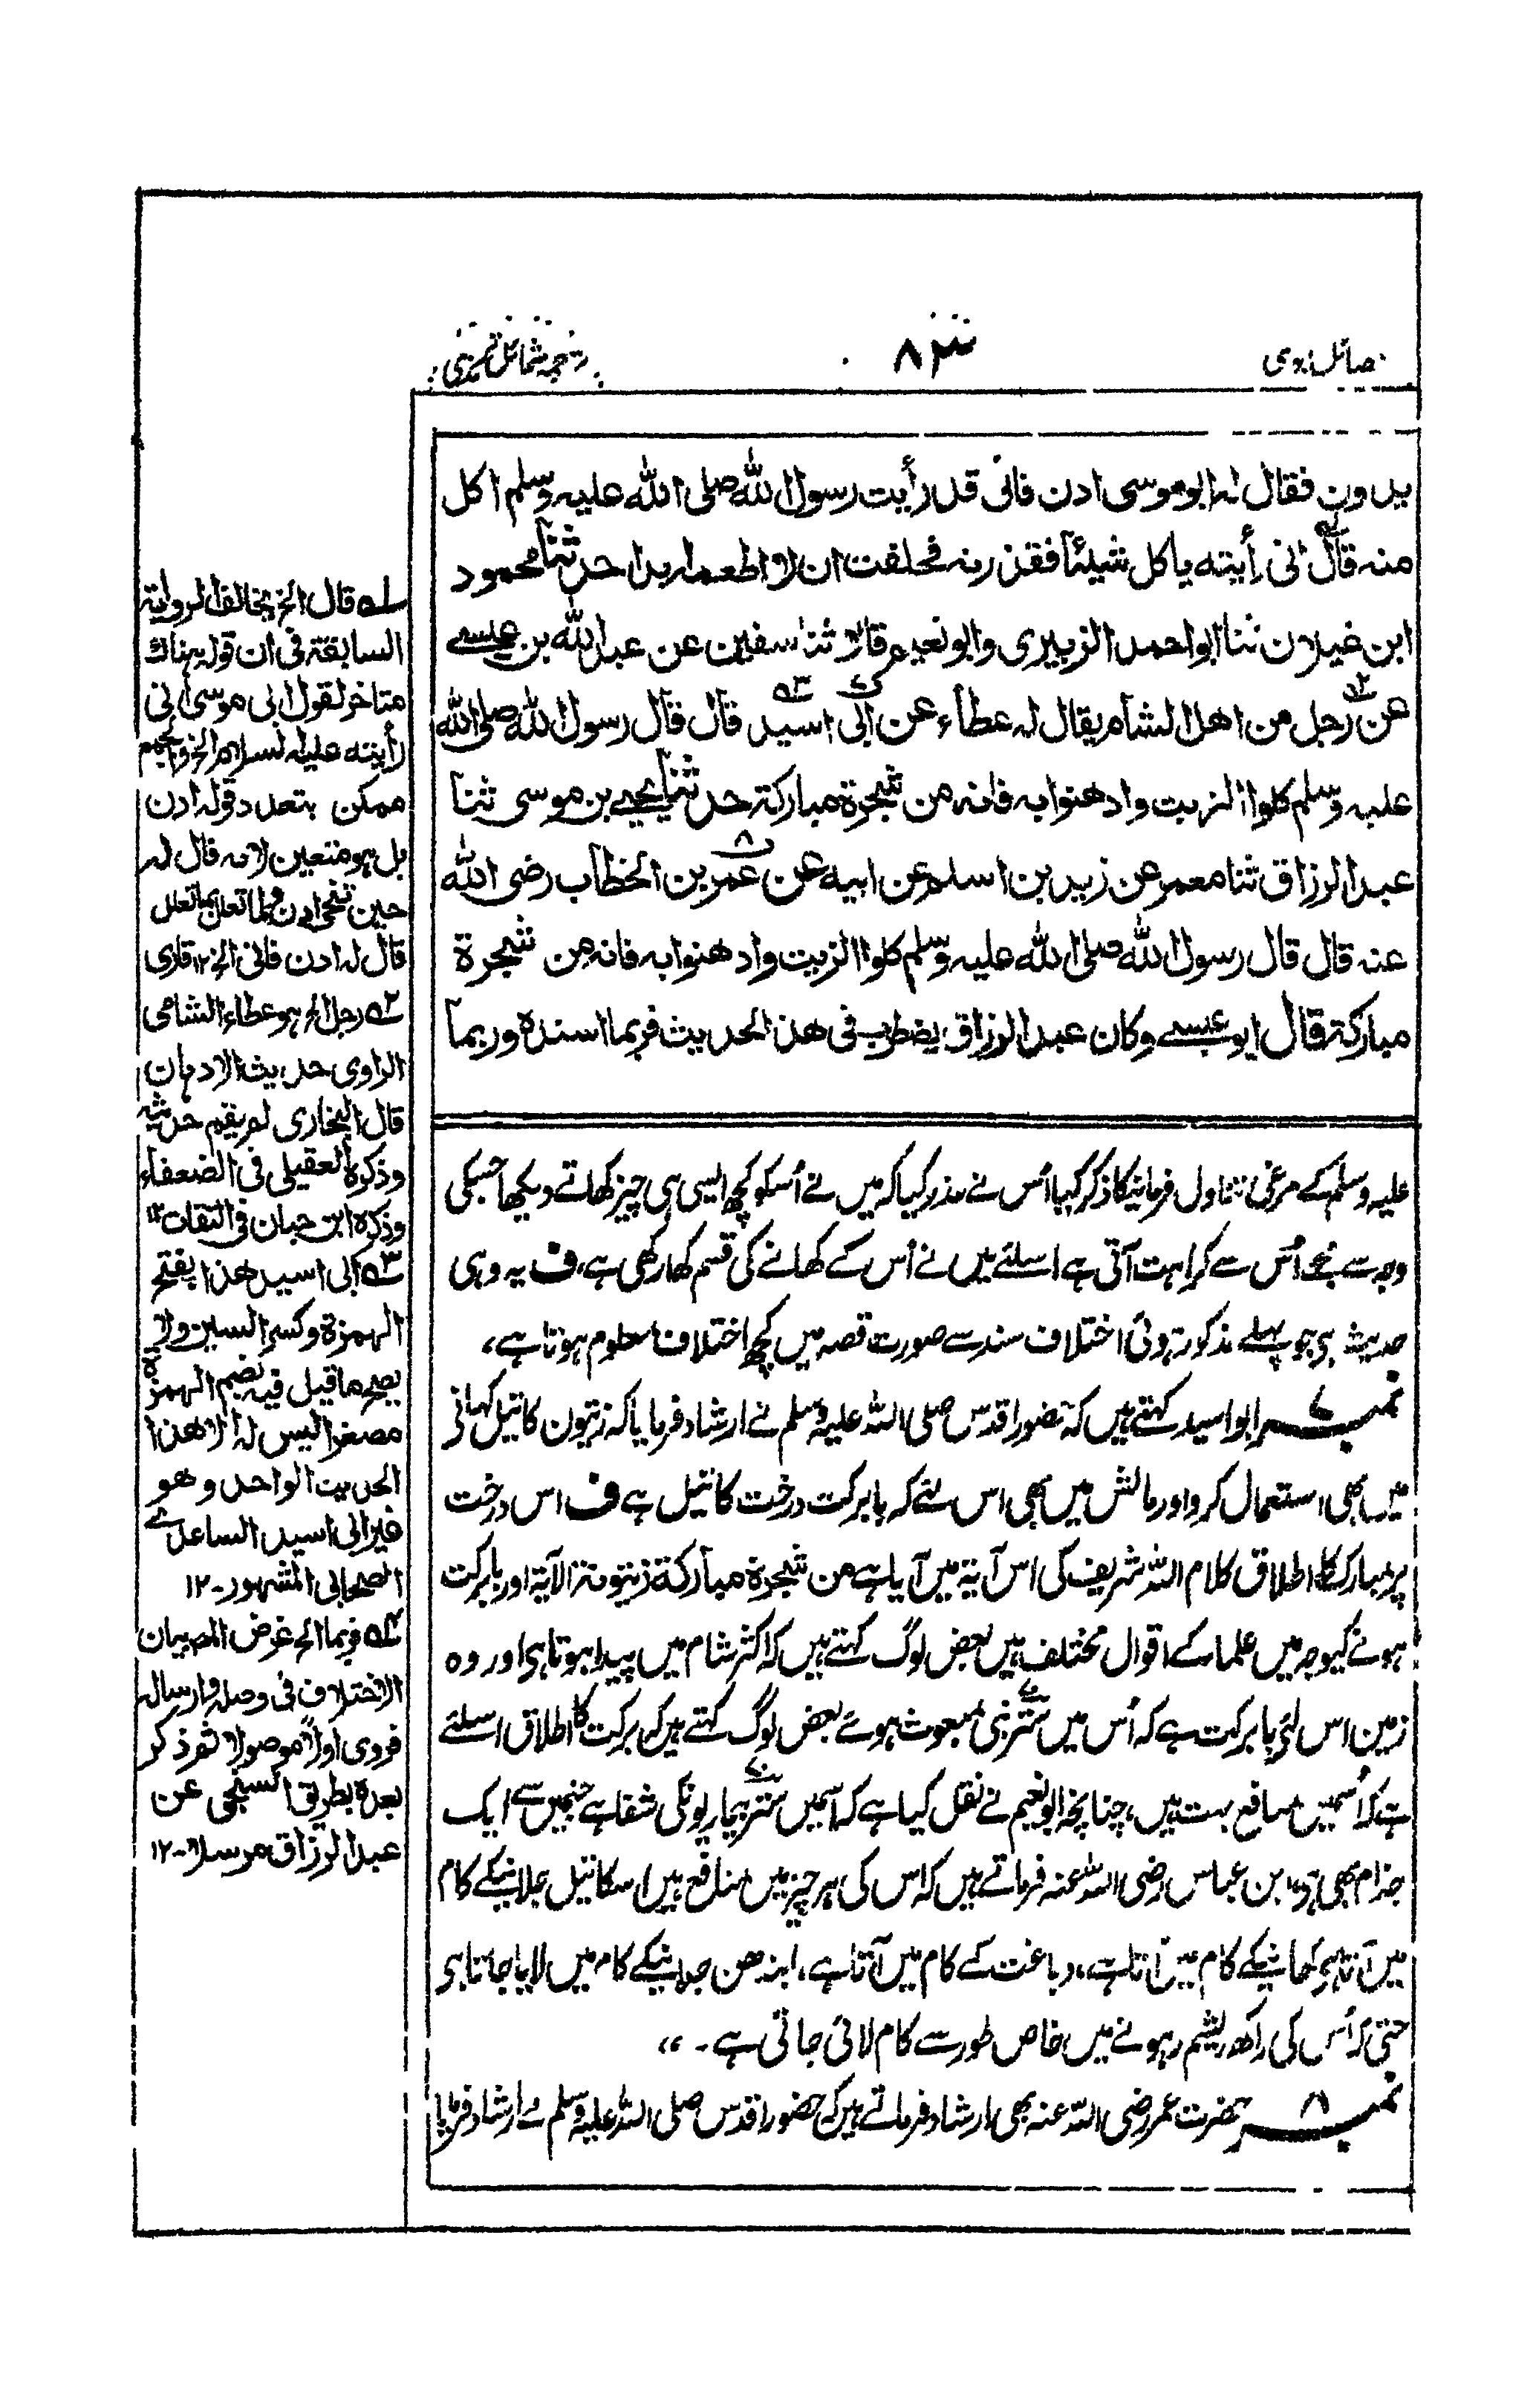 خصائل نبوی
۸۳
ترجمہ شمائل ترمذی
یدن ون فقال لہ ابو موسی ادن فانی قد رأیت رسول اللہ صلی اللہ علیہ وسلم اکل
منہ قال انی رأیتہ یاکل شیئا فقذرتہ فحلفت ان لا اطعمہ ابدا حدثنا محمود
ابن غیلان ثنا ابو احمد الزبیری وابو نعیم قالا ثنا سفین عن عبد اللہ بن عیسے
عن رجل من اھل الشام یقال لہ عطاء عن ابی اسید قال قال رسول اللہ صلی اللہ
علیہ وسلم کلوا الزیت وادھنوا بہ فانہ من شجرة مبارکة حدثنا یحیی بن موسی ثنا
عبد الرزاق ثنا معمر عن زید بن اسلم عن ابیہ عن عمر بن الخطاب رضی اللہ
عنہ قال قال رسول اللہ صلی اللہ علیہ وسلم کلوا الزیت وادھنوا بہ فانہ من شجرة
مبارکة قال ابو عیسے وکان عبد الرزاق یضطرب فی ھذا الحدیث فربما اسندہ وربما
علیہ وسلم کے مرغی تناول فرمانیکا ذکر کیا اُس نے عذر کیا کہ میں نے اُسکو کچھ ایسی ہی چیز کھاتے دیکھا جسکی
وجہ سے مجھے اُس سے کراہت آتی ہے اسلئے میں نے اُس کے کھانے کی قسم کھا رکھی ہے، ف یہ وہی
حدیث ہی جو پہلے مذکور ہوئی اختلاف سند سے صورت قصہ میں کچھ اختلاف معلوم ہوتا ہے،
نمبر ۷ ابو اسید کہتے ہیں کہ حضور اقدس صلی اللہ علیہ وسلم نے ارشاد فرمایا کہ زیتون کا تیل کہانے
میں بھی استعمال کرو اور مالش میں بھی اس لئے کہ بابرکت درخت کا تیل ہے ف اس درخت
پر مبارک کا اطلاق کلام اللہ شریف کی اس آیة میں آیا ہے من شجرة مبارکة زیتونة الآیة اور بابرکت
ہونے کیوجہ میں علماء کے اقوال مختلف ہیں بعض لوگ کہتے ہیں کہ اکثر شام میں پیدا ہوتا ہی اور وہ
زمین اس لئے بابرکت ہے کہ اُس میں ستر نبی مبعوث ہوئے بعض لوگ کہتے ہیں کہ برکت کا اطلاق اسلئے
ہے کہ اُسمیں منافع بہت ہیں، چنانچہ ابو نعیم نے نقل کیا ہے کہ اسمیں ستر بیماریونکی شفا ہے جنمیں سے ایک
جذام بھی ہی، ابن عباس رضی اللہ عنہ فرماتے ہیں کہ اس کی ہر چیز میں منافع ہیں اسکا تیل جلانیکے کام
میں آتا ہی کھانیکے کام میں آتا ہے، دباغت کے کام میں آتا ہے، ایندھن جلانیکے کام میں لایا جاتا ہی
حتی کہ اُس کی راکھ ریشم دہونے میں خاص طور سے کام لائی جاتی ہے۔،،
نمبر ۸ حضرت عمر رضی اللہ عنہ بھی ارشاد فرماتے ہیں کہ حضور اقدس صلی اللہ علیہ وسلم نے ارشاد فرمایا
۱ قال الخ یخالف الروایة
السابقة فی ان قولہ ہناک
متاخر لقول ابی موسی انی
رأیتہ علیہ السلام الخ والجمع
ممکن بتعدد قولہ ادن
بل ہو متعین لانہ قال لہ
حین تنحی ادن ولما تعلل بما تعلل
قال لہ ادن فانی الخ ۱۲ قاری
۲ رجل الخ ہو عطاء الشامی
الراوی حدیث الادہان
قال البخاری لم یقم حدیثہ
وذکرہ العقیلی فی الضعفاء
وذکرہ ابن حبان فی الثقات ۱۲
۳ ابی اسید ھذا بفتح
الہمزة وکسر السین ولا
یصح ما قیل فیہ بضم الہمزة
مصغرا لیس لہ الا ھذا
الحدیث الواحد وھو
غیر ابی اسید الساعدی
الصحابی المشہور۔۱۲
۴ فربما الخ غرض المص بیان
الاختلاف فی وصلہ وارسالہ
فروی اولاً موصولا ثم ذکر
بعدہ بطریق السنجی عن
عبد الرزاق مرسلا۔۱۲